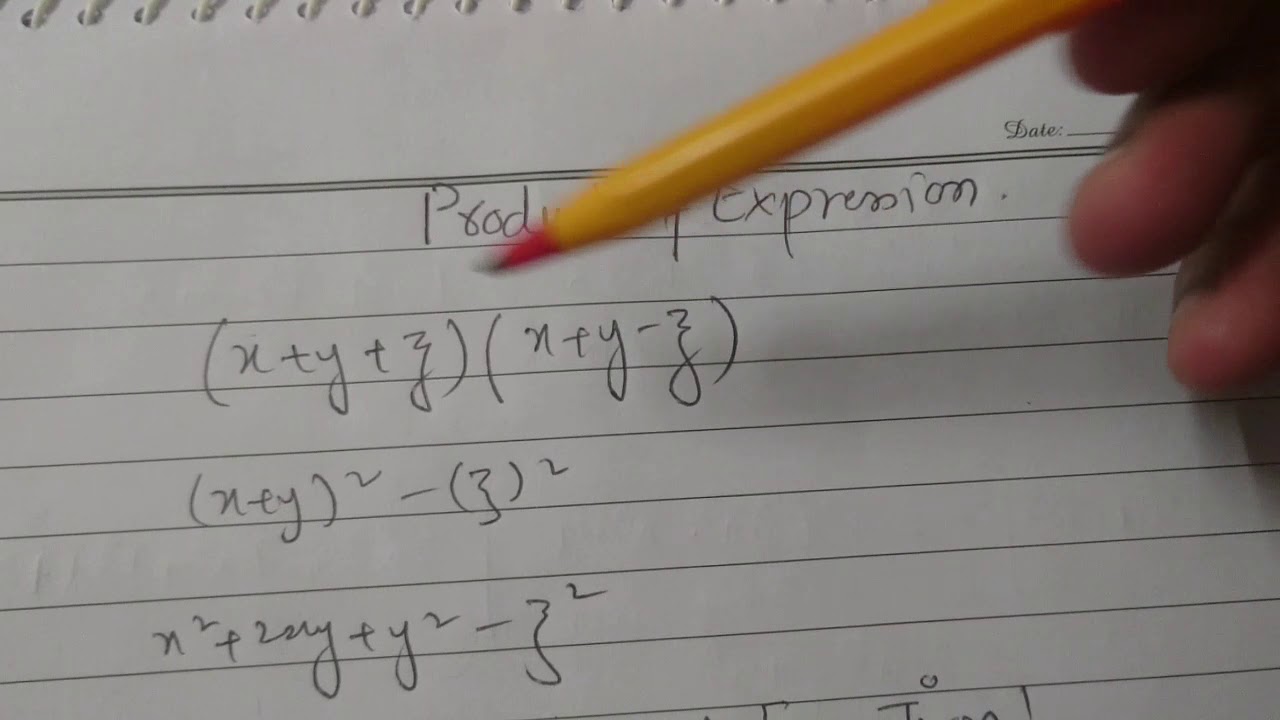 Date:
Expression.
(x+y+z)(x+y-z)
(x+y)² - (z)²
x²+2xy+y²-z²